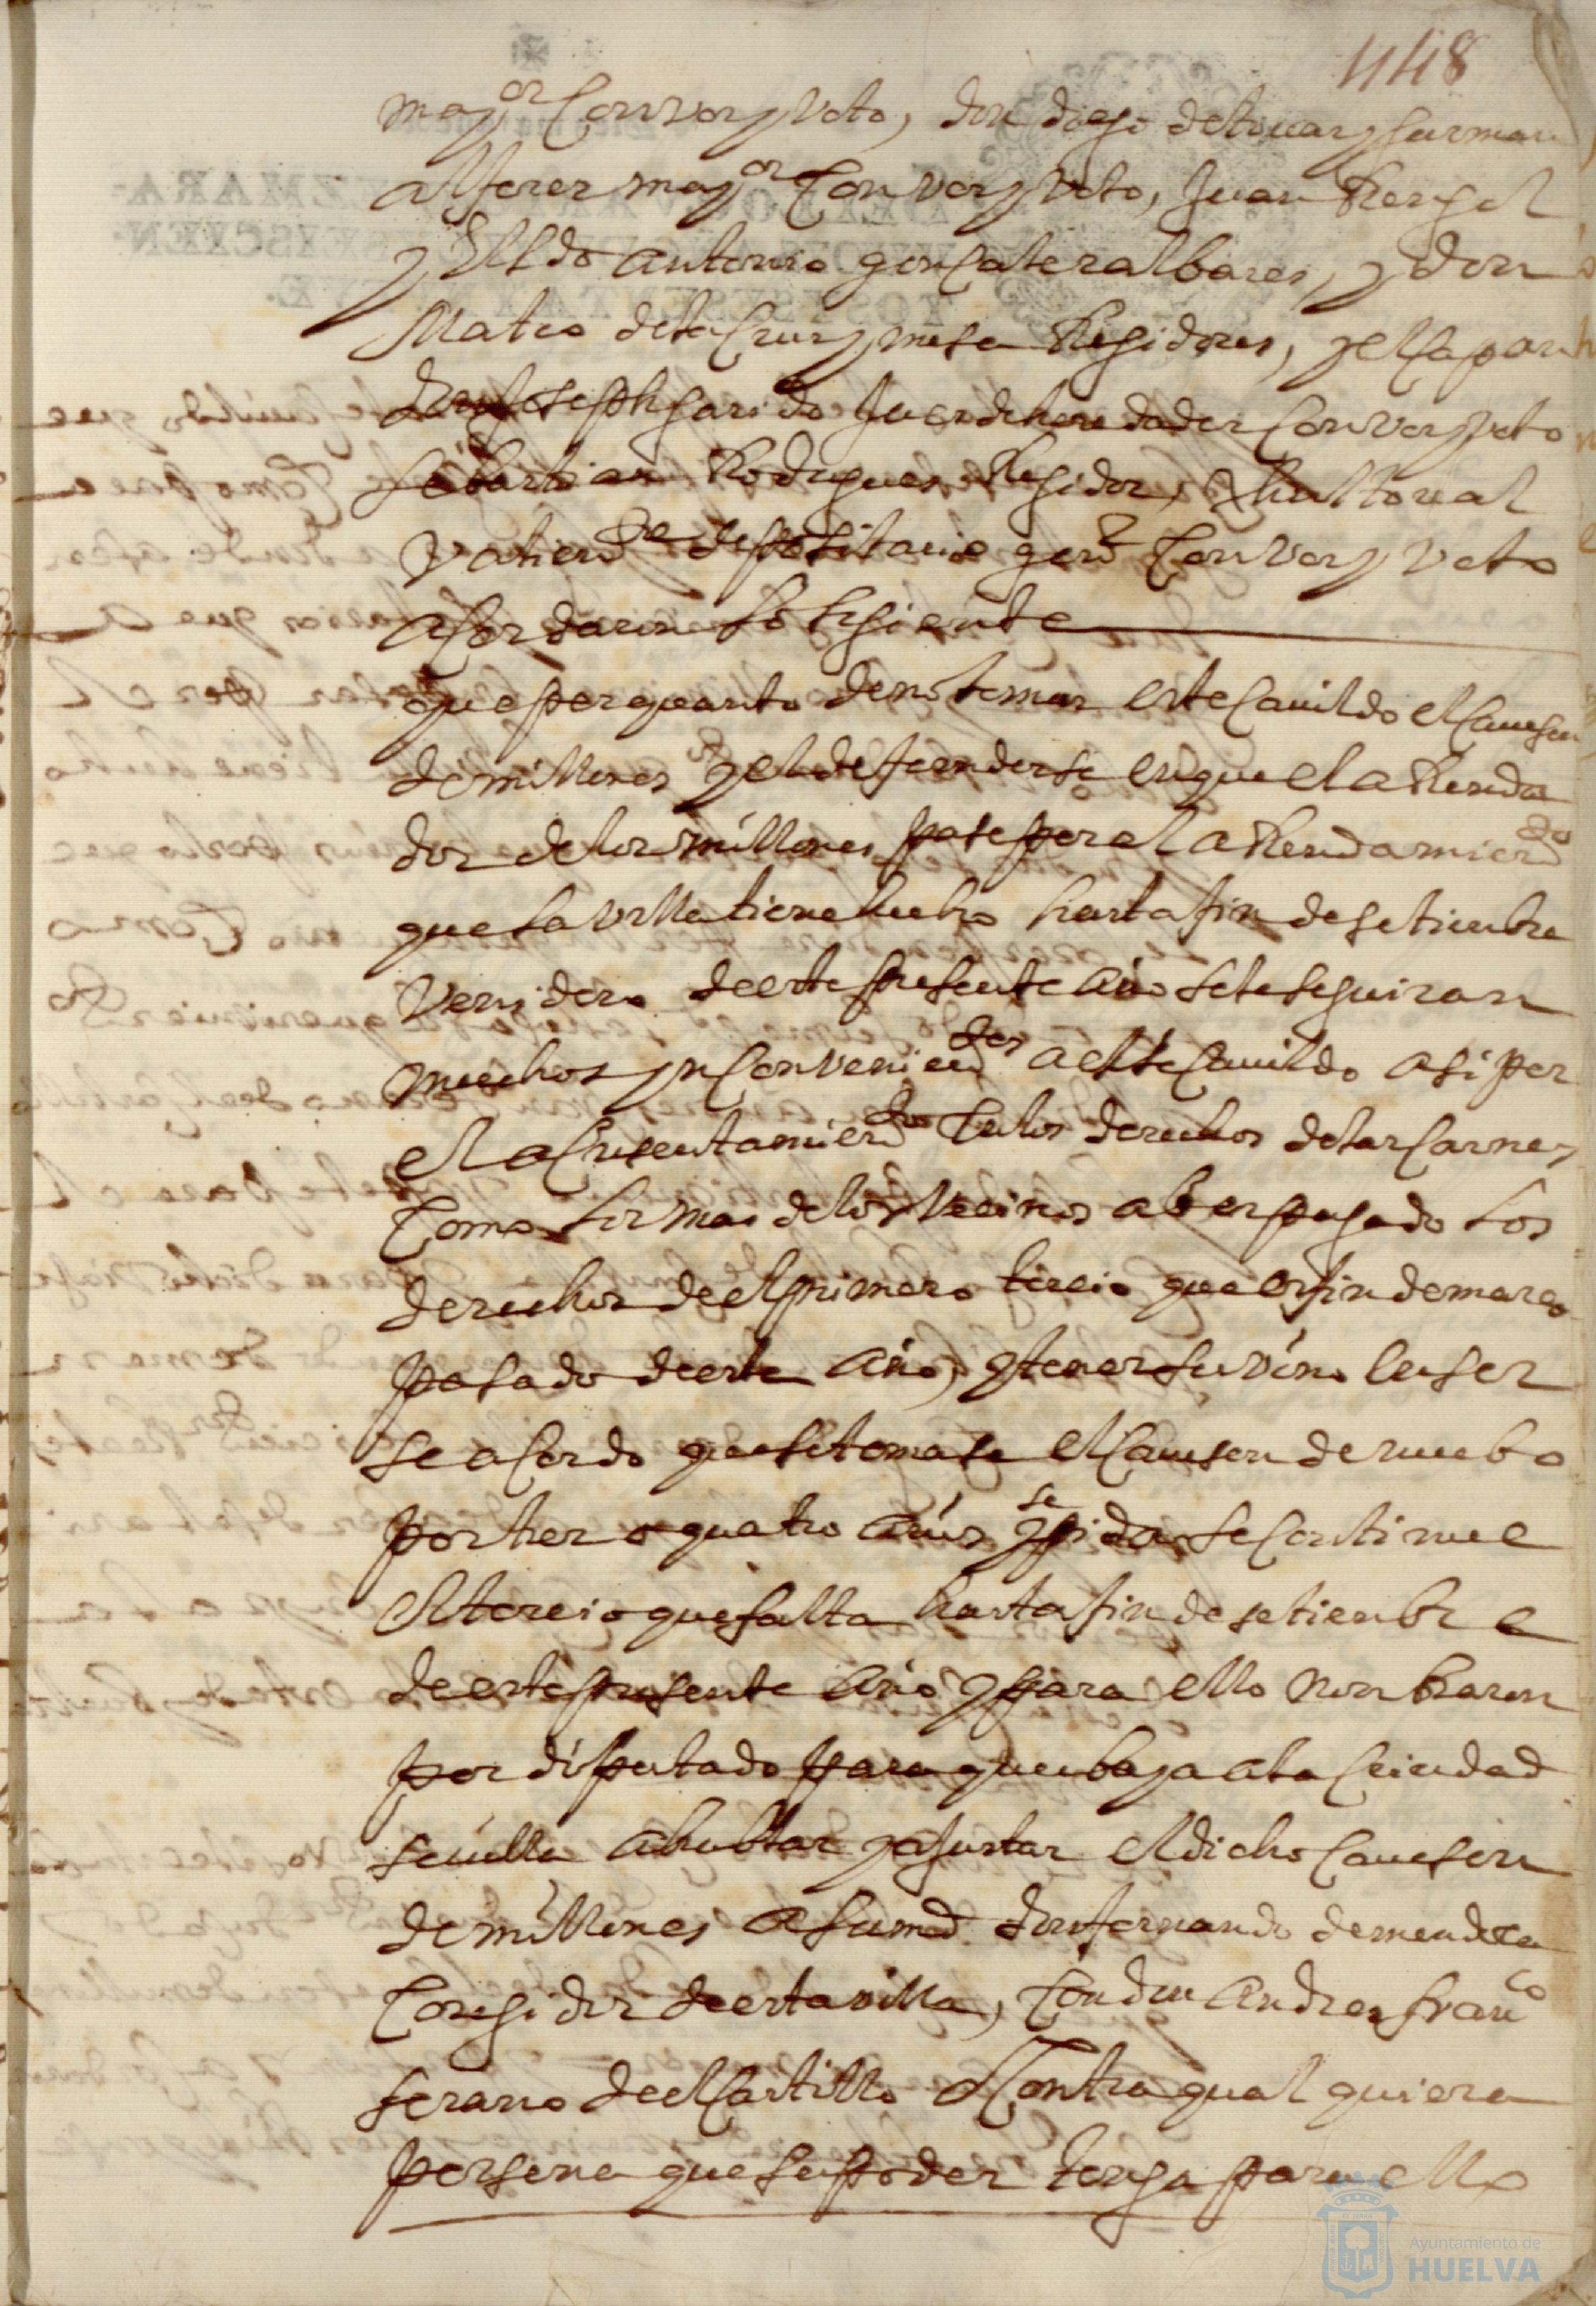 448
mayor Con voz y Voto, don diego de touar y surman
alferez mayor Con voz y Voto, Juan Rengel
y El Ldo antonio gonsalez albares, y don
Mateo de la Cruz y mesa Regidores, y el Capan
Joseph garido Juez de heredades Con voz y voto
Sebastian Rodrigues Regidor,
Valiente depositario genl Con voz y Voto
acordaron lo sigiente
que por quanto de no tomar este Cauildo el Caueson
de millones y el defenderse en que el a Renda
dor de los millones pase por el a Rendamiento
que la villa tiene hecho hasta fin de setienbre
Venidero de este presente año se le seguiran
muchos ynConvenientes a este Cauildo asi por
el acresentamiento en los derechos de las Carnes
Como los mas de los Vecinos aber pagado los
derechos de el primero tercio que es fin de março
pasado de este año, y tener su vino en ser
se acordo que se tomase el Caueson de nuebo
por tres o quatro años y se pida se Continue
el tercio que falta hasta fin de setienbre
de este presente año y para ello nonbraron
por diputado para que baya a la Ciudad
seuilla a hablar y ajustar el dicho Caueson
de millones a su md don fernando de mendoça
Coregidor de esta villa, Con don Andres franco
serano de el Castillo o Contra qual quiera
persona que su poder tenga para ello
Ayuntamiento de
HUELVA